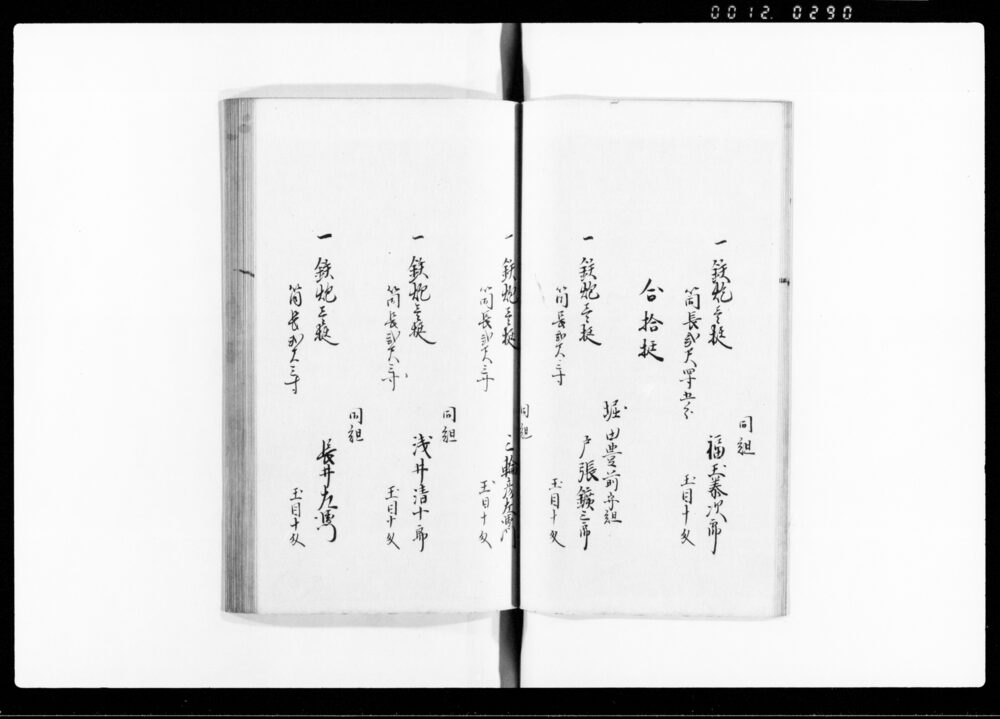 0012.0290
同組
一鉄炮壱挺 福玉泰次郎
筒長弐尺四寸五分 玉目十匁
合拾挺
堀田豊前守組
一鉄炮壱挺 戸張鑛三郎
筒長弐尺三寸 玉目十匁
同組
一鉄炮壱挺 三輪彦左衛門
筒長弐尺三寸 玉目十匁
同組
一鉄炮壱挺 浅井清十郎
筒長弐尺三寸 玉目十匁
同組
一鉄炮壱挺 長井左
筒長弐尺三寸 玉目十匁